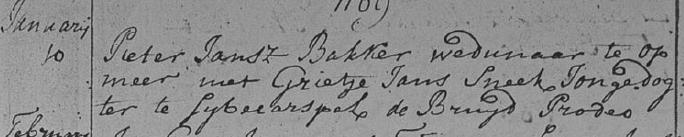 Januarij
10 Pieter Jansz Bakker wedunaar te op
meer met Grietje Jans Sneek Jongedog
ter te Sybecarspel de Bruyd Prodeo